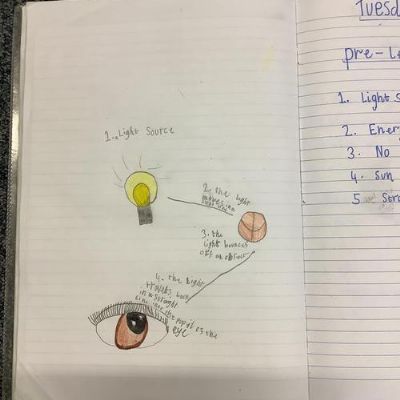 1. Light Source
2. the light
3. the
light bounces
off an object
4. the light
travels back
in a straight
line into the pupil of the
eye
Tuesd
pre-le
1. Light s
2. Ener
3. No
4. Sun
5 Stra